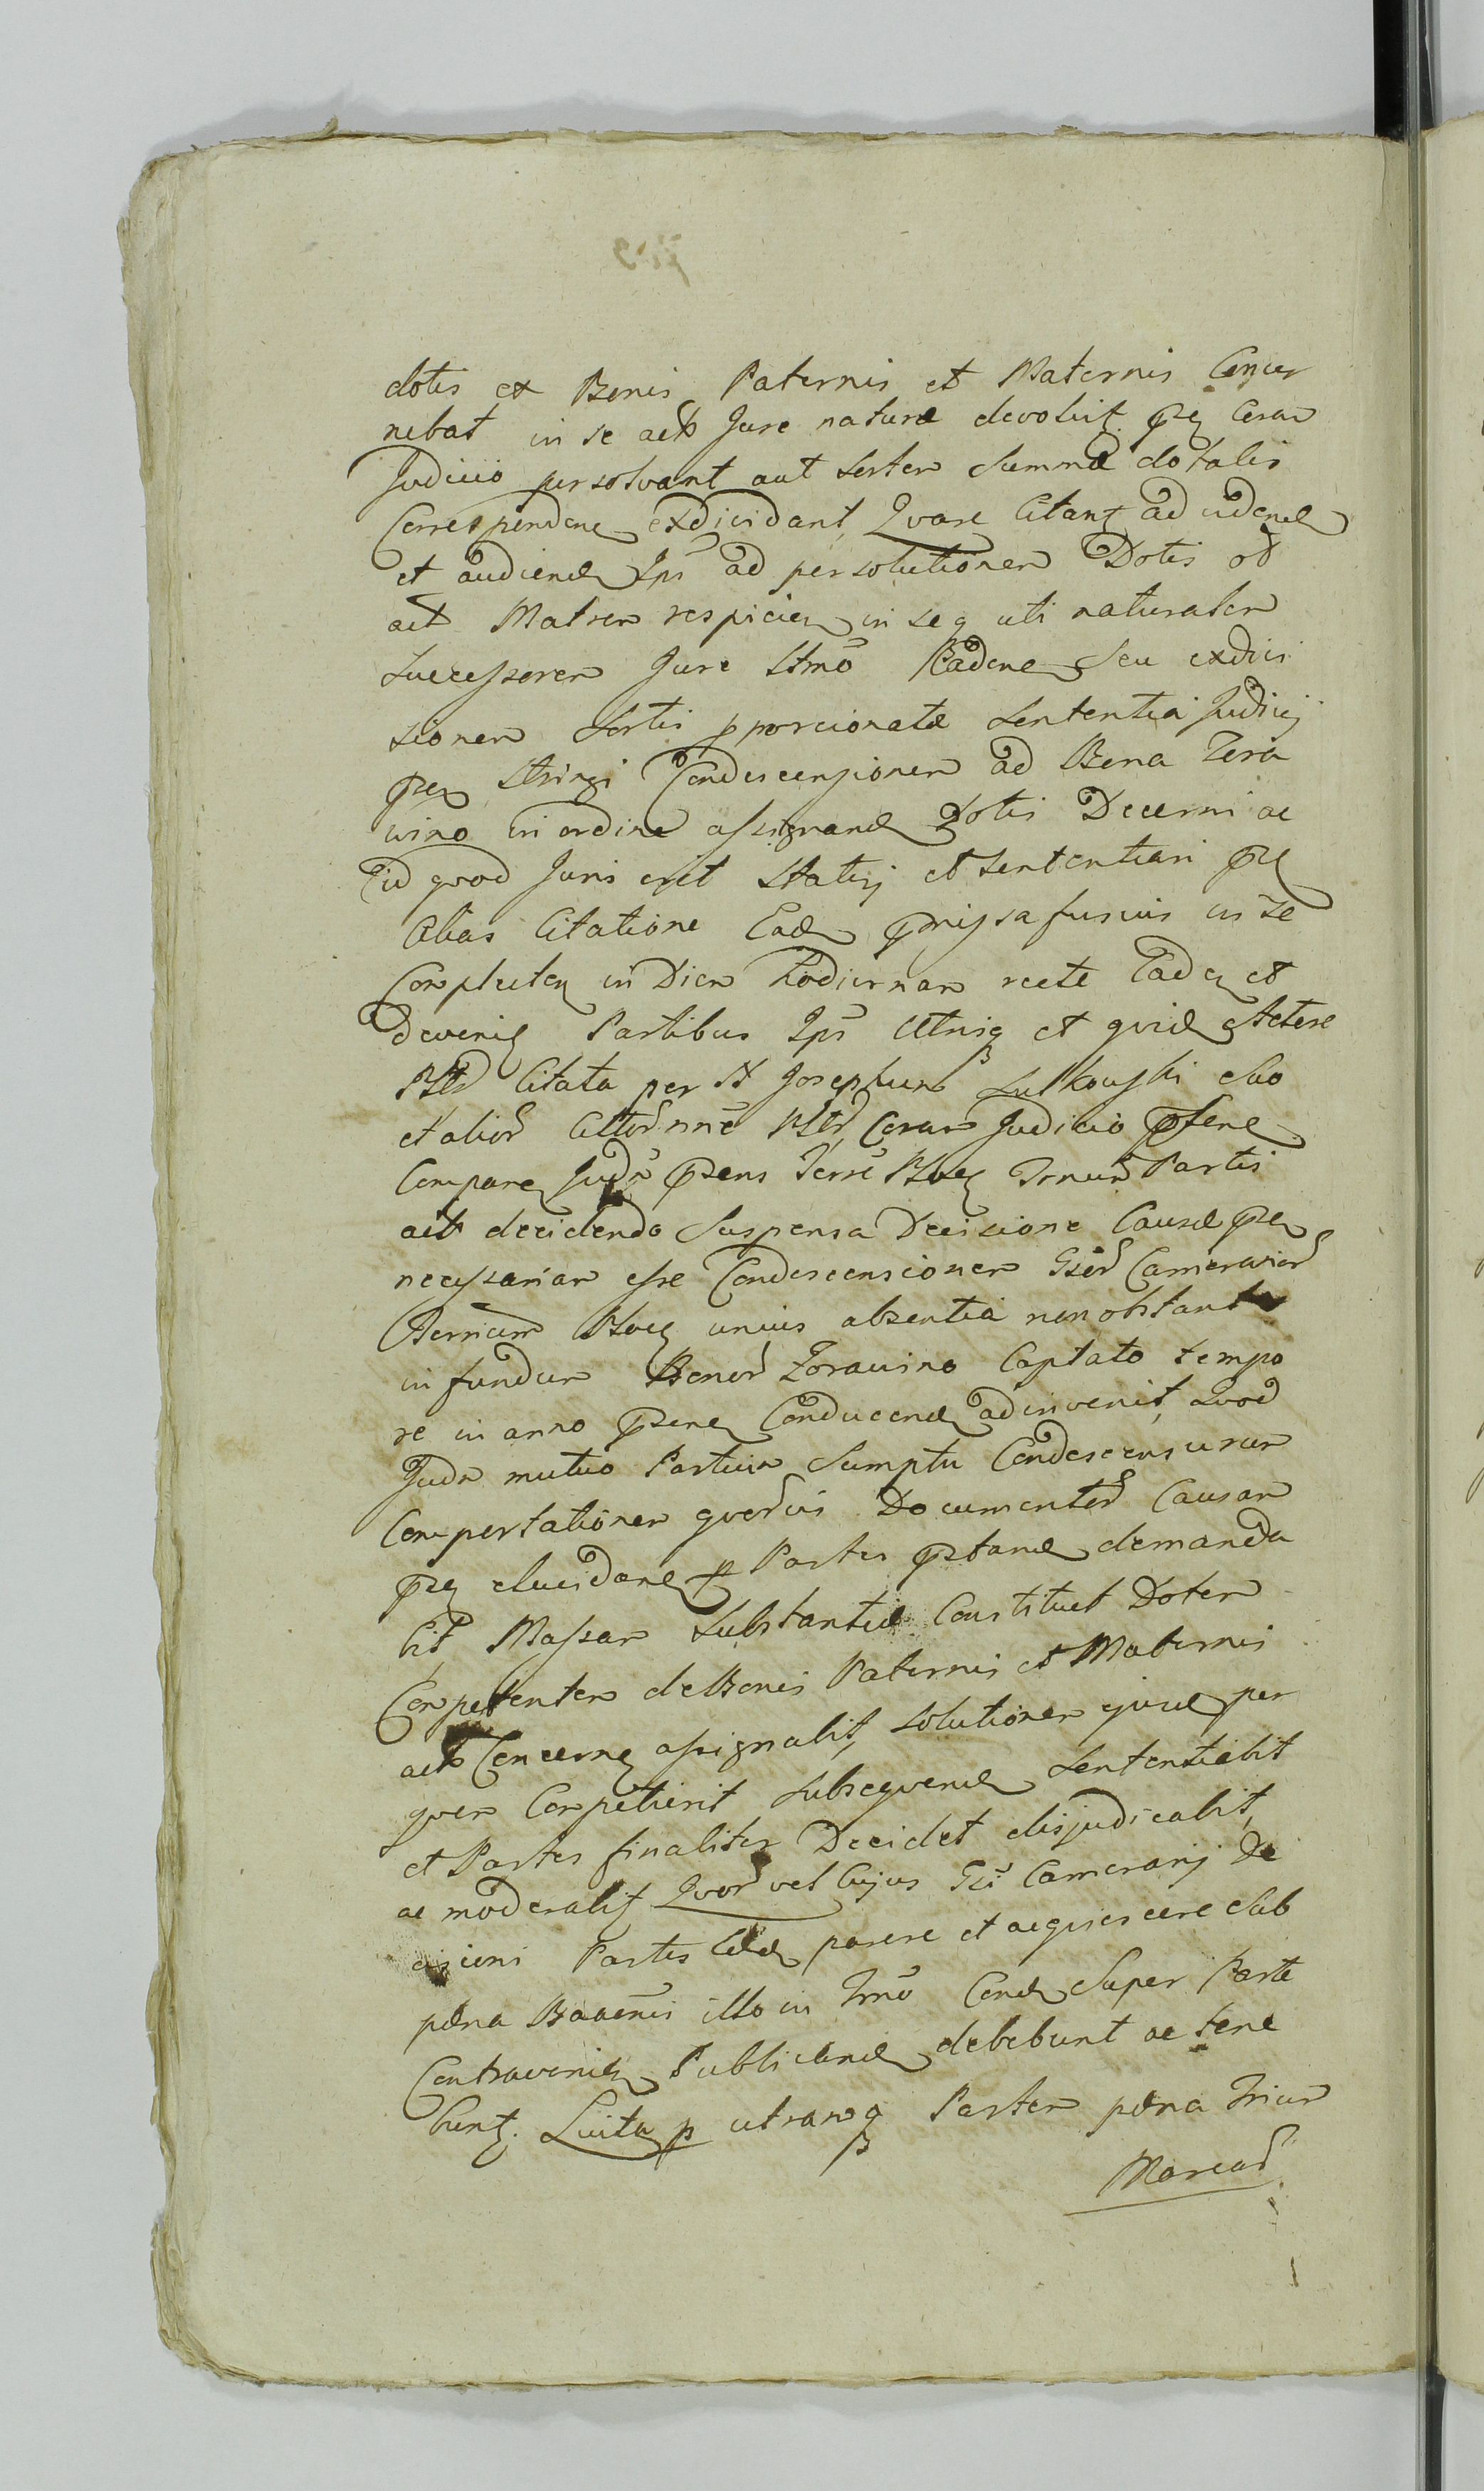 dotis ex Bonis Paternis et Maternis Concer
nebat in se act Jure naturæ devolvit pñ Coram
Judicio persolvant aut Sortem Summæ dotalis
Correspondene exdividant, Qvare Citant ad videnđ
et audienđ Ips ad persolutionem Dotis od
act Matrem respicien in seq uti naturalem
Successorem Jure Strmo Cadene Seu exdivi
sionem Sortis pporcionatæ Sententia Judicij
pñ Stringi Condescensionem ad Bona Zora
wino in ordine assignanđ Dotis Decerni ac
id qvod Juris erit Statui et Sententiari pñ
Alias Citatione Eađ pmissa fusius in se
Complecten in Diem hodiernam recte Cađ et
devenien Partibus Ips Utrisq et qviđ Actore
Citata per N Josephum Sulkowski Suo
et alior Coram Judicio psene
Comparen Judm psens Terre Partis
act decidendo Suspensa Decisione Causæ psen
necessariam esse Condescensionem Camerarior
unius absentia non obstante
in fundum Bonor Zorawino Captato tempo
re in anno psene Conducenđ adinvenit, Qvod
Judm mutuo Partium Sumptu Condescensurum
Comportationem qvorvis Documentor Causam
psen elucidane p Partes pstanđ demanda
bit, Massam Substantiæ Constituet Dotem
Competentem de Bonis Paternis et Maternis
act Concerne assignabit, Solutionem ejusđ per
qvem Competierit Subseqvenđ Sententiabit
et Partes finaliter Decidet disjudicabit,
ac moderabit Qvor vel Cujus Gsi Camerarij De
cisioni Partes parere et acqviescere Sub
pæna Bannis illo in Trmo Conđ Super Parte
Contravenien Publicanđ debebunt ac tene
bunt. Luita p utramq Partem pæna Trium
Marcar